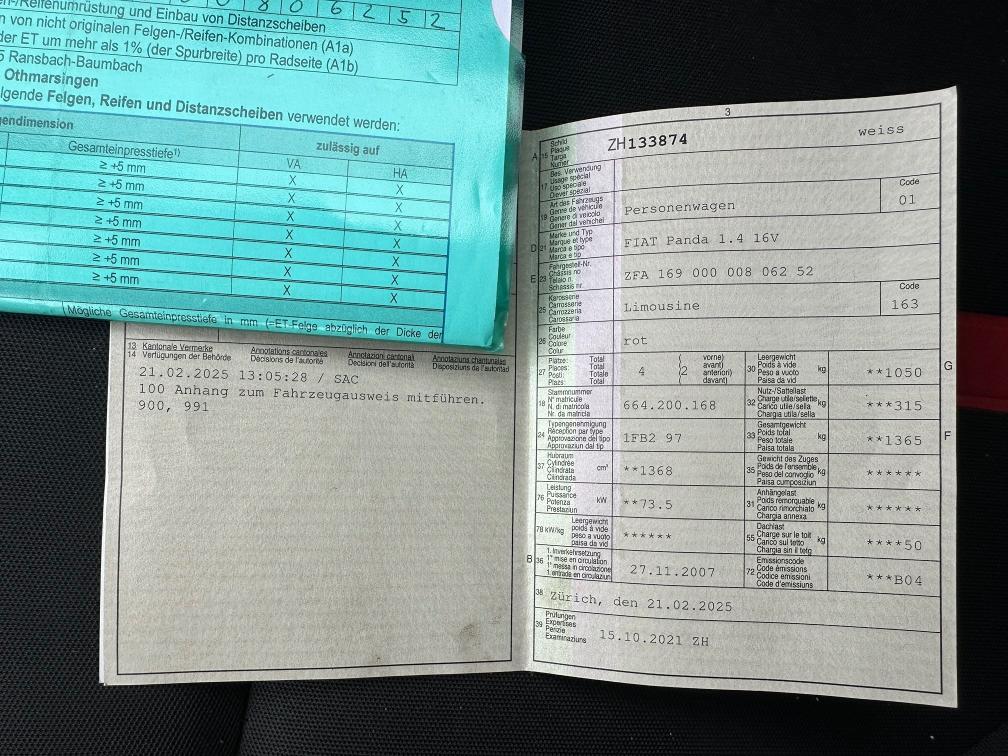 8 0 6 2 5 2
-/Reifenumrüstung und Einbau von Distanzscheiben
n von nicht originalen Felgen-/Reifen-Kombinationen (A1a)
der ET um mehr als 1% (der Spurbreite) pro Radseite (A1b)
5 Ransbach-Baumbach
Othmarsingen
lgende Felgen, Reifen und Distanzscheiben verwendet werden:
endimension
zulässig auf
Gesamteinpresstiefe¹⁾ VA HA
≥ +5 mm X X
≥ +5 mm X X
≥ +5 mm X X
≥ +5 mm X X
≥ +5 mm X X
≥ +5 mm X X
≥ +5 mm X X
Mögliche Gesamteinpresstiefe in mm (=ET-Felge abzüglich der Dicke der
13 Kantonale Vermerke Annotations cantonales Annotazioni cantonali Annotaziuns chantunalas
14 Verfügungen der Behörde Décisions de l'autorité Decisioni dell'autorità Disposiziuns da l'autoritad
21.02.2025 13:05:28 / SAC
100 Anhang zum Fahrzeugausweis mitführen.
900, 991
3
A 15 Schild
Plaque
Targa
Numer
ZH133874 weiss
17 Bes. Verwendung
Usage spécial
Uso speciale
Diever spezial
19 Art des Fahrzeugs
Genre de véhicule
Genere di veicolo
Gener dal vehichel
Personenwagen
Code
01
D 21 Marke und Typ
Marque et type
Marca e tipo
Marca e tip
FIAT Panda 1.4 16V
E 23 Fahrgestell-Nr.
Châssis no
Telaio n.
Schassis nr.
ZFA 169 000 008 062 52
25 Karosserie
Carrosserie
Carrozzeria
Carossaria
Limousine
Code
163
26 Farbe
Couleur
Colore
Colur
rot
27 Plätze: Total
Places: Total
Posti: Totale
Plazs: Total
4 (2 vorne)
avant)
anteriori)
davant)
30 Leergewicht
Poids à vide
Peso a vuoto
Paisa da vid
kg
**1050
G
18 Stammnummer
N° matricule
N. di matricola
Nr. da matricla
664.200.168
32 Nutz-/Sattellast
Charge utile/sellette
Carico utile/sella
Chargia utila/sella
kg
***315
24 Typengenehmigung
Réception par type
Approvazione del tipo
Approvaziun dal tip
1FB2 97
33 Gesamtgewicht
Poids total
Peso totale
Paisa totala
kg
**1365
F
37 Hubraum
Cylindrée
Cilindrata
Cilindrada
cm³
**1368
35 Gewicht des Zuges
Poids de l'ensemble
Peso del convoglio
Paisa cumposiziun
kg
******
76 Leistung
Puissance
Potenza
Prestaziun
kW
**73.5
31 Anhängelast
Poids remorquable
Carico rimorchiato
Chargia annexa
kg
******
78 kW/kg Leergewicht
poids à vide
peso a vuoto
paisa da vid
******
55 Dachlast
Charge sur le toit
Carico sul tetto
Chargia sin il tetg
kg
****50
B 36 1. Inverkehrsetzung
1re mise en circulation
1a messa in circolazione
1. entrada en circulaziun
27.11.2007
72 Emissionscode
Code émissions
Codice emissioni
Code d'emissiuns
***B04
38 Zürich, den 21.02.2025
39 Prüfungen
Expertises
Perizie
Examinaziuns
15.10.2021 ZH